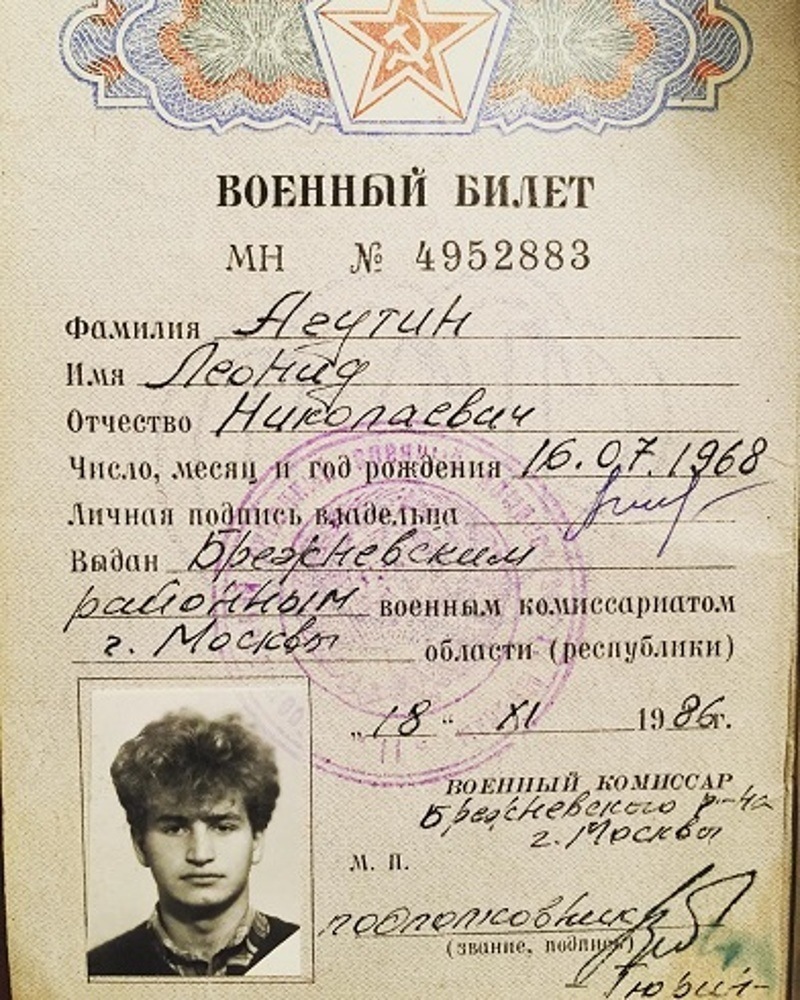 ВОЕННЫЙ БИЛЕТ
МН № 4952883
Фамилия Агутин
Имя Леонид
Отчество Николаевич
Число, месяц и год рождения 16.07.1968
Личная подпись владельца
Выдан Брежневским
районным военным комиссариатом
г. Москвы области (республики)
„18“ XI 1986г.
ВОЕННЫЙ КОМИССАР
Брежневского р-на
г. Москвы
М. П.
подполковник
(звание, подпись)